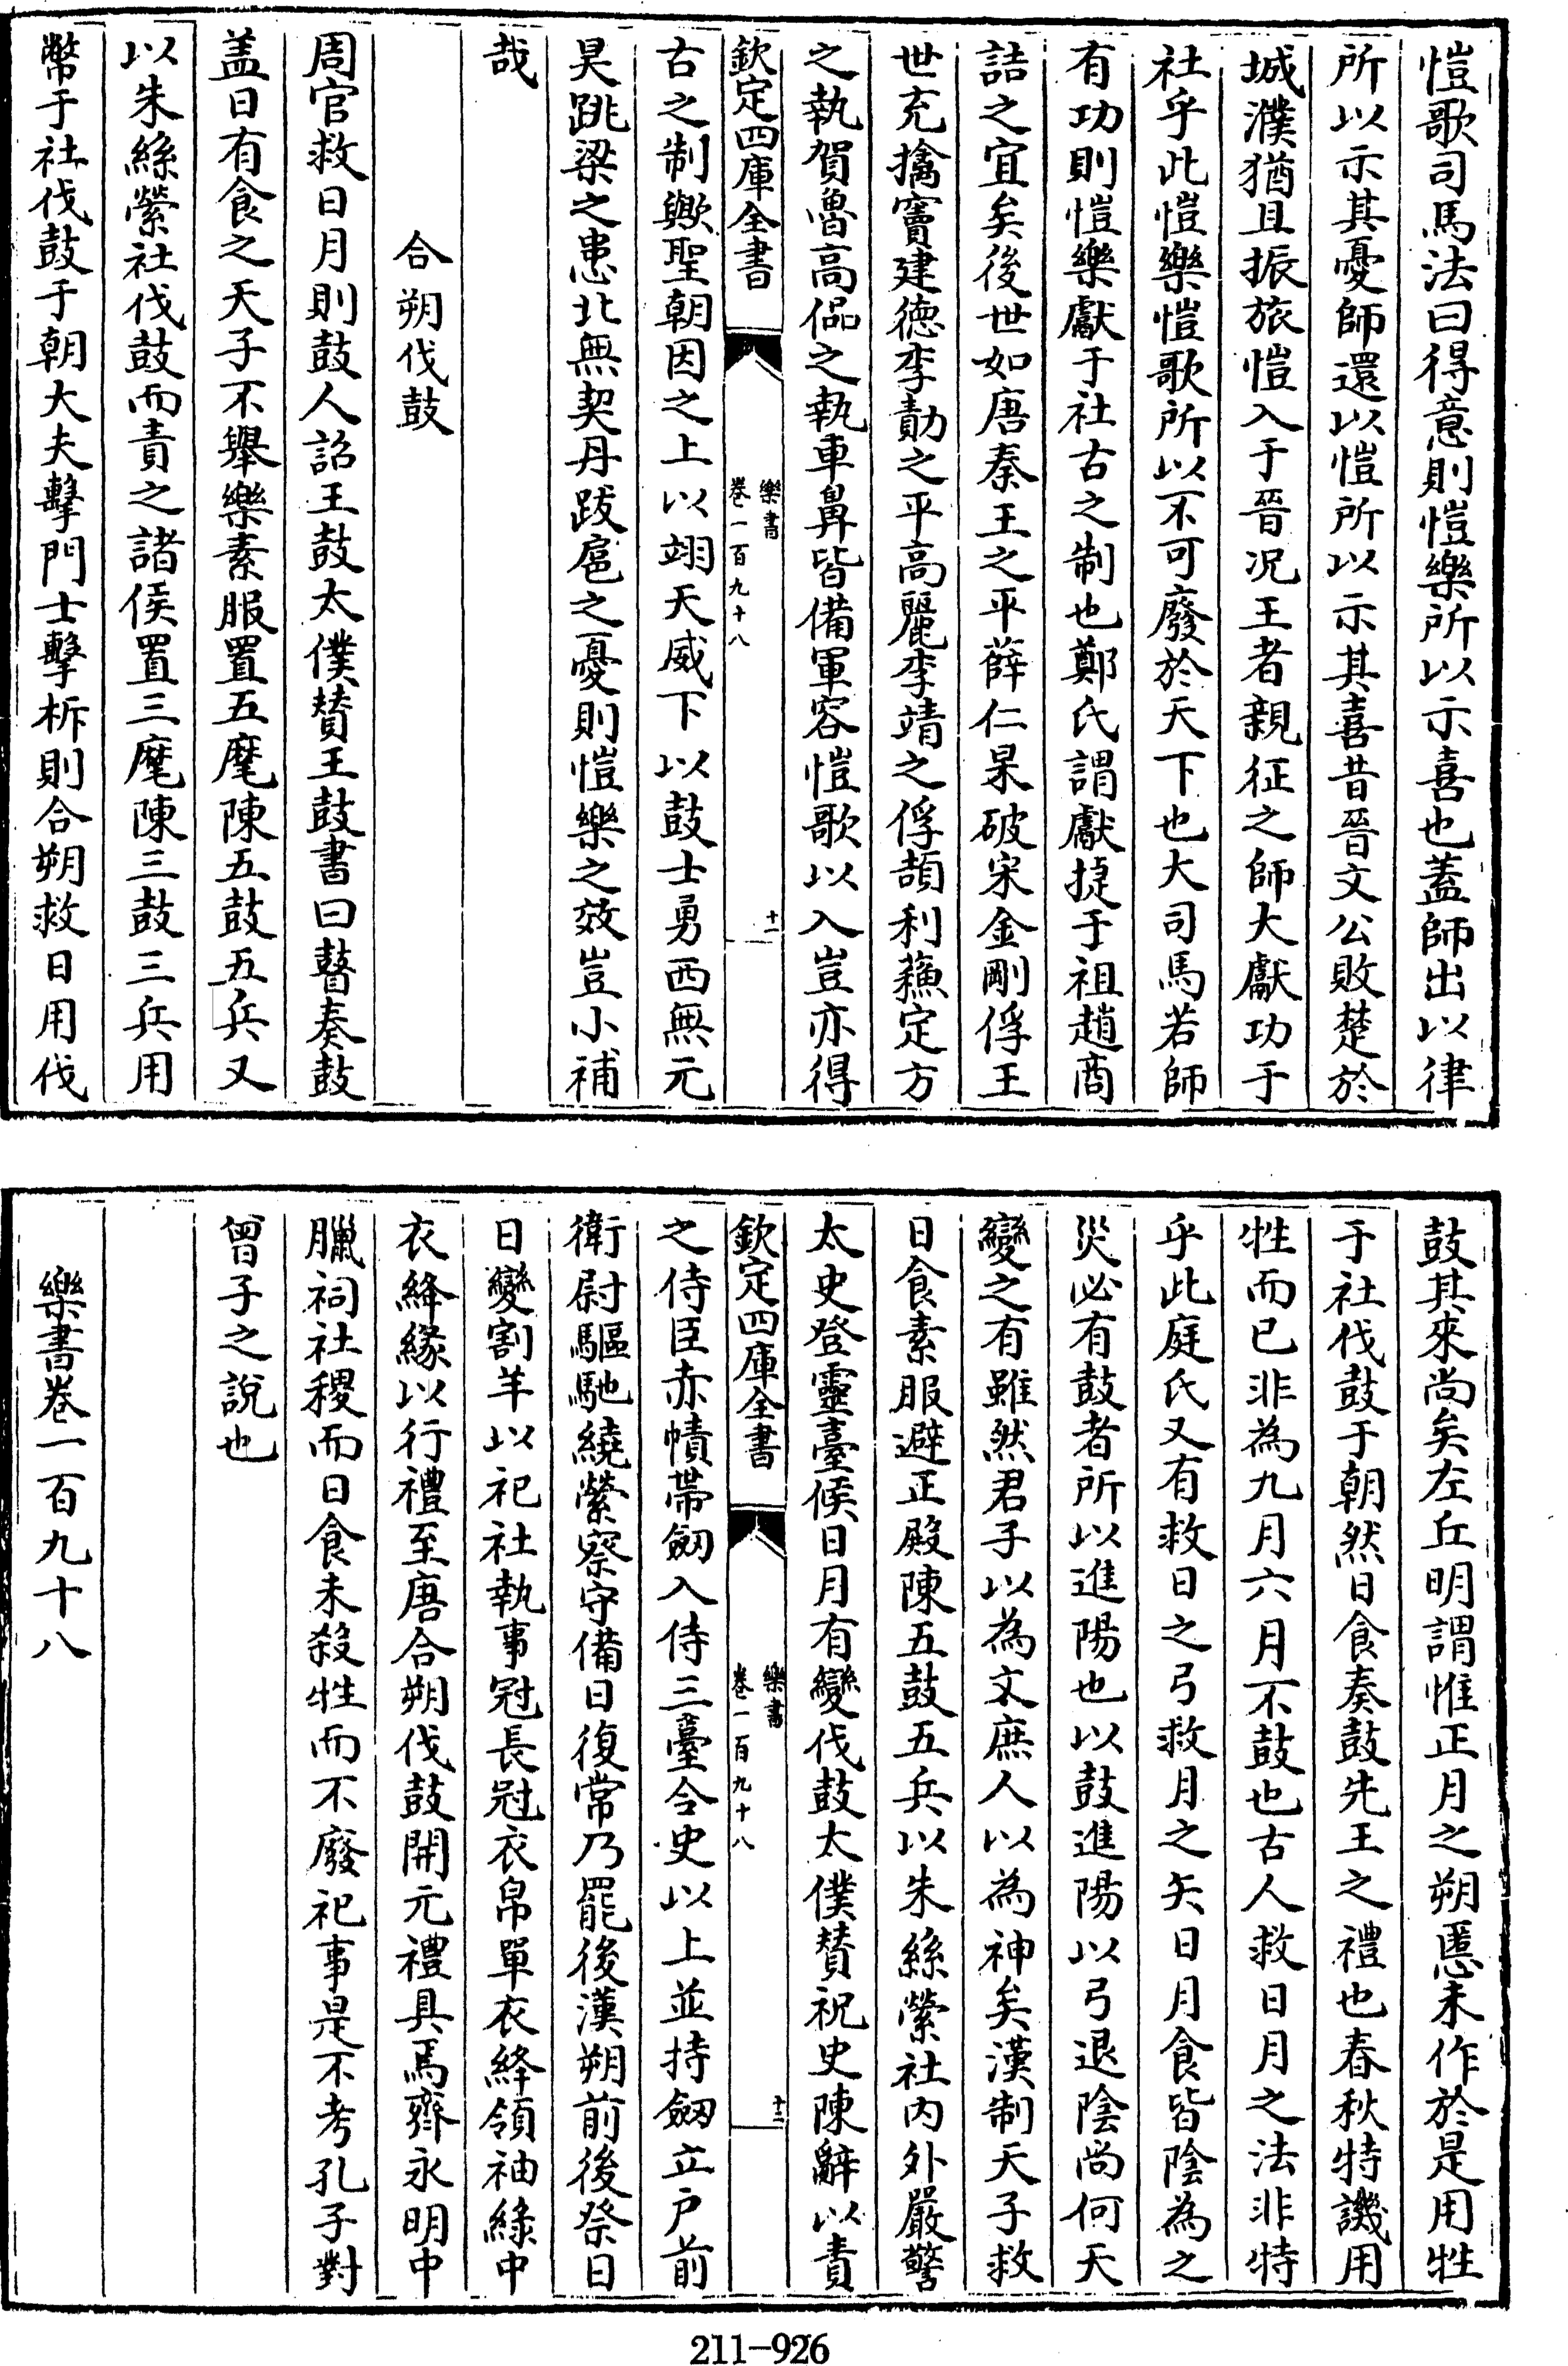 愷歌司馬法曰得意則愷樂所以示喜也蓋師出以律
所以示其憂師還以愷所以示其喜昔晉文公敗楚於
城濮猶且振旅愷入于晉况王者親征之師大獻功于
社乎此愷樂愷歌所以不可廢於天下也大司馬若師
有功則愷樂獻于社古之制也鄭氏謂獻捷于祖趙商
詰之宜矣後世如唐秦王之平薛仁杲破宋金剛俘王
世充擒竇建德李勣之平高麗李靖之俘頡利蘓定方
之執賀魯高偘之執車鼻皆備軍容愷歌以入豈亦得
欽定四庫全書
樂書
卷一百九十八
十一
古之制歟聖朝因之上以翊天威下以鼓士勇西無元
昊跳梁之患北無契丹跋扈之憂則愷樂之效豈小補
哉
合朔伐鼓
周官救日月則鼓人詔王鼓太僕賛王鼓書曰瞽奏鼓
盖日有食之天子不舉樂素服置五麾陳五鼓五兵又
以朱絲縈社伐鼓而責之諸侯置三麾陳三鼓三兵用
幣于社伐鼓于朝大夫擊門士擊柝則合朔救日用伐
鼓其來尚矣左丘明謂惟正月之朔慝未作於是用牲
于社伐鼓于朝然日食奏鼓先王之禮也春秋特譏用
牲而已非為九月六月不鼓也古人救日月之法非特
乎此庭氏又有救日之弓救月之矢日月食皆陰為之
災必有鼓者所以進陽也以鼓進陽以弓退陰尚何天
變之有雖然君子以為文庶人以為神矣漢制天子救
日食素服避正殿陳五鼓五兵以朱絲縈社内外嚴警
太史登靈臺候日月有變伐鼓太僕賛祝史陳辭以責
欽定四庫全書
樂書
卷一百九十八
十二
之侍臣赤幘帶劒入侍三臺令史以上並持劒立户前
衛尉驅馳繞縈察守備日復常乃罷後漢朔前後祭日
日變割羊以祀社執事冠長冠衣帛單衣絳領袖緣中
衣絳緣以行禮至唐合朔伐鼓開元禮具焉齊永明中
臘祠社稷而日食未殺牲而不廢祀事是不考孔子對
曾子之說也
樂書卷一百九十八
211-926